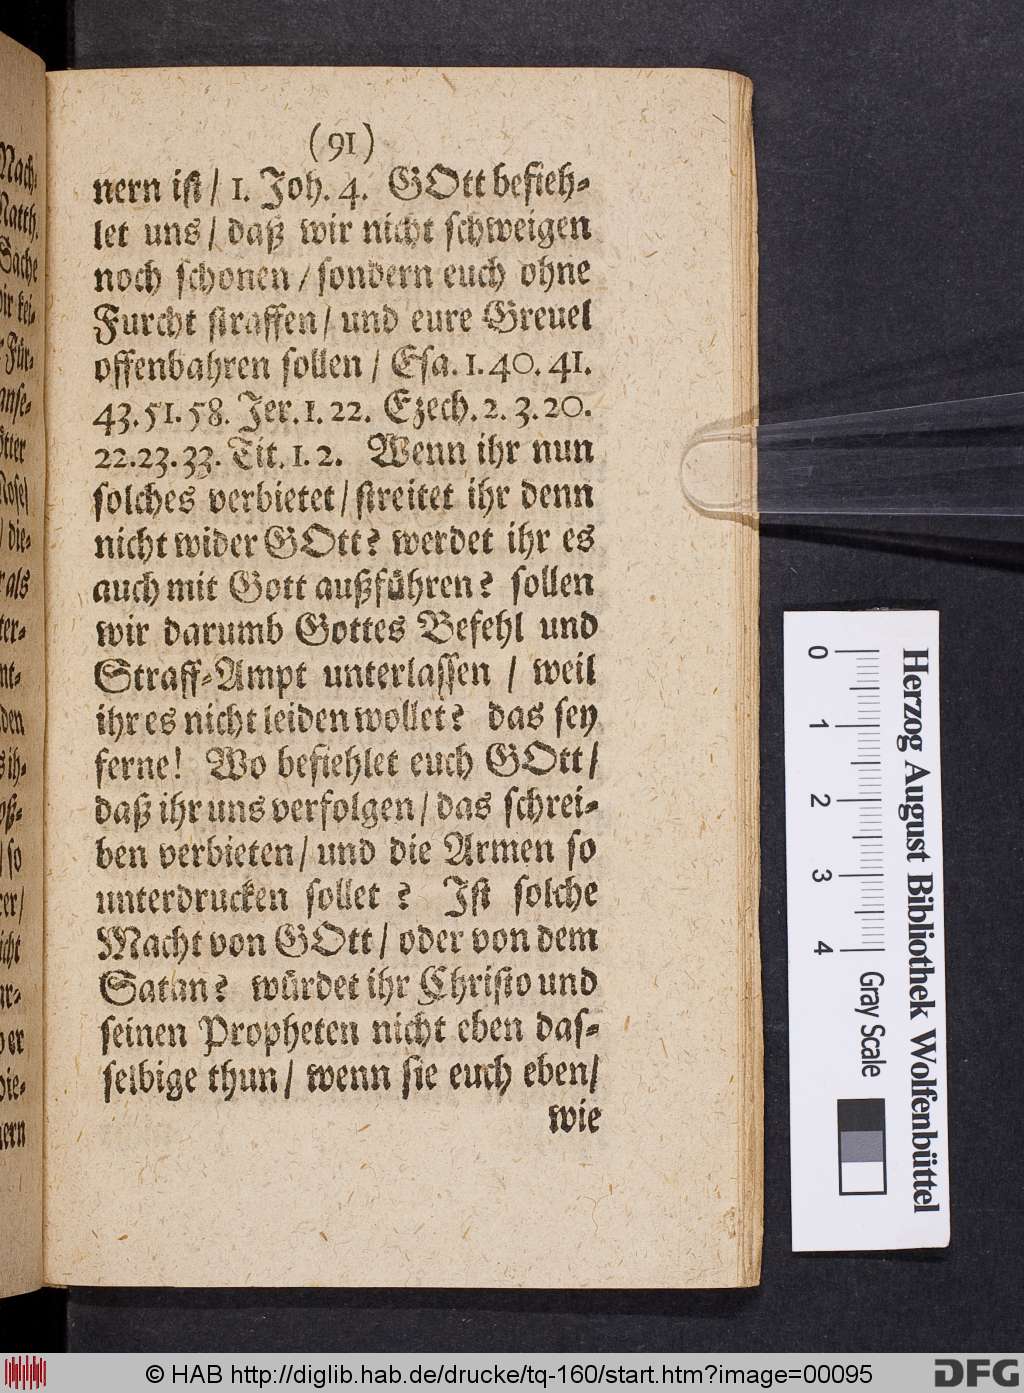 (91)
nern ist / 1. Joh. 4. GOtt befieh-
let uns / daß wir nicht schweigen
noch schonen / sondern euch ohne
Furcht straffen / und eure Greuel
offenbahren sollen / Esa. 1. 40. 41.
43. 51. 58. Jer. 1. 22. Ezech. 2. 3. 20.
22. 23. 33. Tit. 1. 2. Wenn ihr nun
solches verbietet / streitet ihr denn
nicht wider GOtt? werdet ihr es
auch mit Gott außführen? sollen
wir darumb Gottes Befehl und
Straff-Ampt unterlassen / weil
ihr es nicht leiden wollet? das sey
ferne! Wo befiehlet euch GOtt /
daß ihr uns verfolgen / das schrei-
ben verbieten / und die Armen so
unterdrucken sollet? Ist solche
Macht von GOtt / oder von dem
Satan? würdet ihr Christo und
seinen Propheten nicht eben das-
selbige thun / wenn sie euch eben /
wie
Mach-
Matth.
Sache
kei-
Für-
als
die-
den
so
icht
0 1 2 3 4
Gray Scale
Herzog August Bibliothek Wolfenbüttel
© HAB http://diglib.hab.de/drucke/tq-160/start.htm?image=00095
DFG